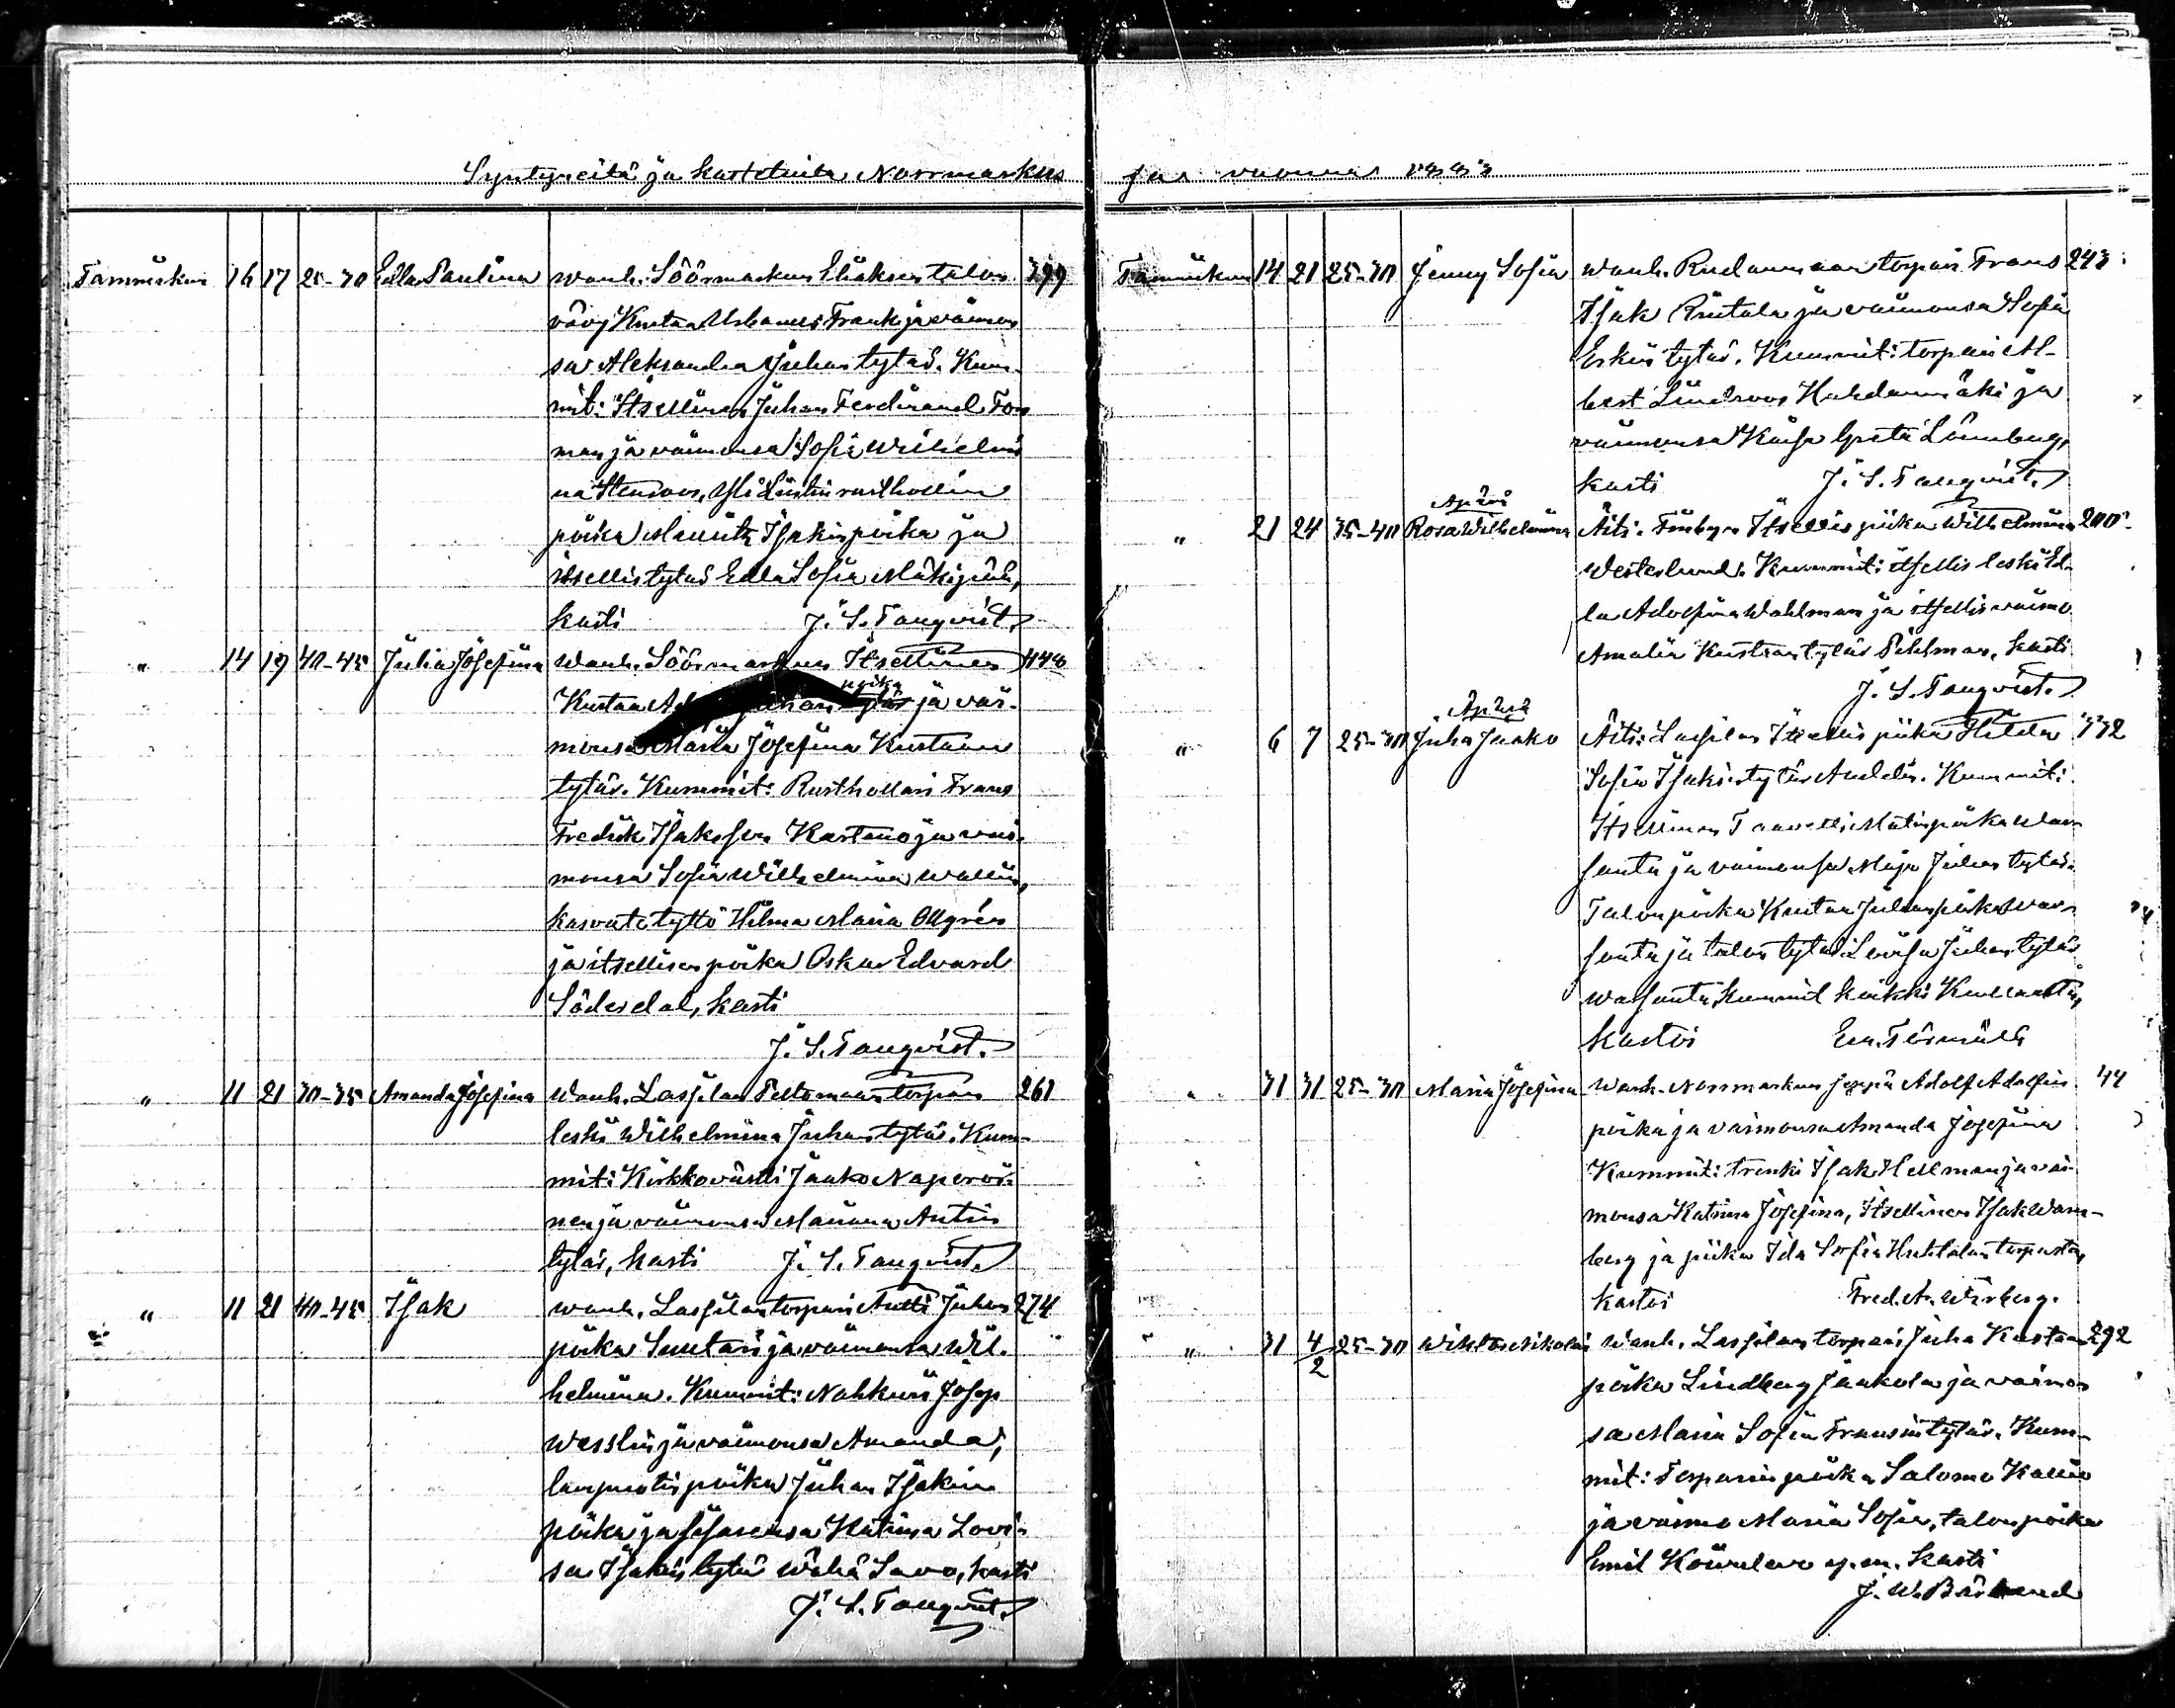 Syntyneitä ja kastetuita Norrmarkus
Tammikuu 16 17 25-30 Edla Paulina wanh. Söörmarkun Eliaksen talon 399
vävy Kustaa Urbanus Frank ja vaimon
sa Aleksandra Juhan tytär. Kum-
mit: Itsellinen Juhan Ferdinand Fors
man ja vaimonsa Sofia Wilhelmi
na Stenroos, Yli Liutin rusthollin
poika Mauritz Isakin poika ja
itsellis tytär Edla Sofia Mäkipää,
kasti J. S. Tanqvist.
" 14 19 40-45 Julia Josefina wanh. Söörmarkun Itsellinen 448
poika
Kustaa Juhan tytär ja vai-
monsa Maria Josefina Kustaan
tytär. Kummit: Rusthollari Frans
Fredrik Isaksson Kartano ja vai-
monsa Sofia Wilhelmina Wallin,
kasvate tyttö Hilma Maria Ollgrén
ja itsellisen poika Oskar Edvard
Söderdal, kasti
J. S. Tanqvist.
" 11 21 30-35 Amanda Josefina wanh. Lassilan Peltomaan torpan 261
leski Wilhelmina Juhan tytär. Kum-
mit: Kirkkoväärti Jaako Naparoi-
nen ja vaimonsa Mariana Antin
tytär, kasti J. S. Tanqvist.
" 11 21 40-45 Isak wanh. Lassilan torpari Antti Juhan 274
poika Suutari ja vaimonsa Wil-
helmina. Kummit: Nahkuri Josep
Wesslin ja vaimonsa Amanda,
lampuotin poika Juhan Isakin
poika ja sisarensa Katrina Lovi-
sa Isakin tytär Wähä Savo, kasti
J. S. Tanqvist.
sa vuonna
Tammikuu 14 21 25-30 Jenny Sofia wanh. Rudanmaan torpari Frans 243
Isak Rintala ja vaimonsa Sofia
Erkin tytär. Kummit: torpari Al-
bert Lindroos Hahdanmäki ja
vaimonsa Kaisa Greta Lönnberg,
kasti J. S. Tanqvist.
Apärä
" 21 24 35-40 Rosa Wilhelmina Äiti: Finbyn Itsellis piika Wilhelmina 200
Westerlund. Kummit: itsellis leski Ed-
la Adolfina Wahlman ja itsellis vaimo
Amalia Kustaan tytär Pihlman, kasti
J. S. Tanqvist.
Apärä
" 6 7 25-30 Juha Jaako Äiti: Lassilan Itsellis piika Hilda 332
Sofia Isakin tytär Kummit:
Itsellinen Taavetti Matin poika Wan
santa ja vaimonsa Maja Juhan tytär.
Talon poika Kustaa Juhan poika Wan
santa ja talon tytär Lovisa Juhan tytär
Wasanta, kummit kaikki
Kastoi Em. Törmälä
" 31 31 25-30 Maria Josefina wanh. Norrmarkun seppä Adolf Adolfin 44
poika ja vaimonsa Amanda Josefina
Kummit: trenki Isak Hellman ja vai-
monsa Katrina Josefina, Itsellinen Isak Wam-
berg ja piika Ida Sofia Huhtalan torpasta,
kastoi Fred. A. Wirberg.
" 31 4/2 25-30 Wihtor Nikolai wanh. Lassilan torpari Juha Kustaan 292
poika Lindberg Jaakola ja vaimon
sa Maria Sofia Fransin tytär. Kum-
mit: Torparin poika Salomo Kallio
ja vaimo Maria Sofia, talon poika
Emil Koivulave y. m. kasti
J. W. Bärlund